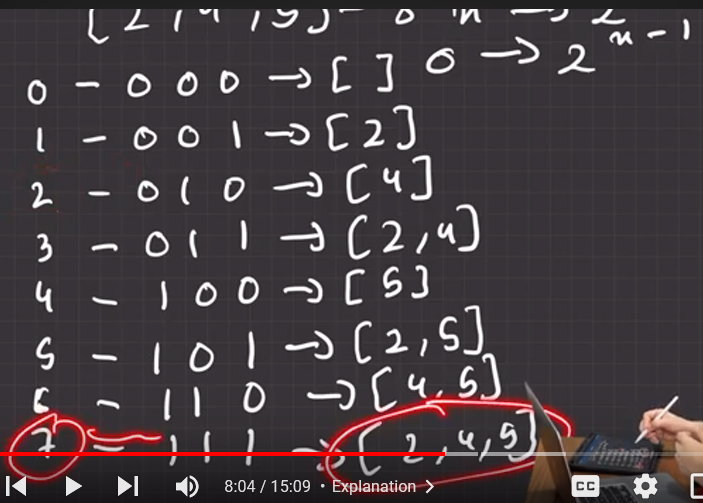 [2, 4, 5]
0 → 2^n-1
0 - 0 0 0 → [ ]
1 - 0 0 1 → [2]
2 - 0 1 0 → [4]
3 - 0 1 1 → [2,4]
4 - 1 0 0 → [5]
5 - 1 0 1 → [2,5]
6 - 1 1 0 → [4,5]
7 - 1 1 1 → [2,4,5]
8:04 / 15:09 • Explanation >
CC